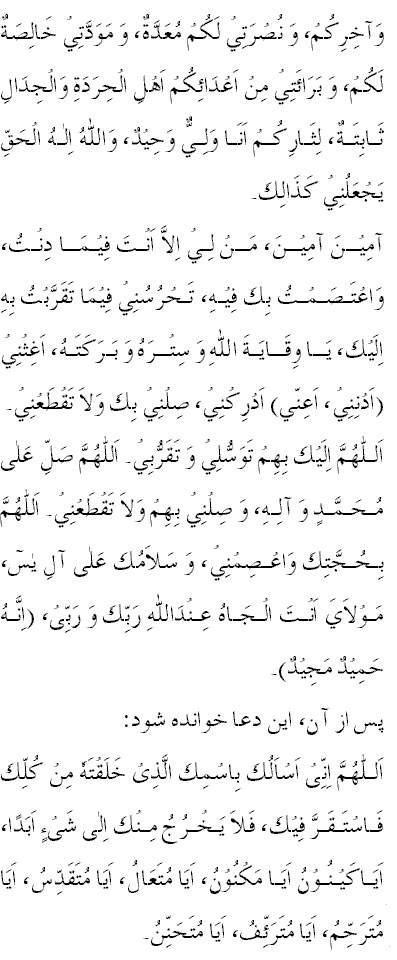 وَ آخِرِكُمْ، وَ نُصْرَتِيْ لَكُمْ مُعَدَّةٌ، وَ مَوَدَّتِيْ خَالِصَةٌ
لَكُمْ، وَ بَرَائَتِيْ مِنْ اَعْدَائِكُمْ اَهْلِ الْحِرَدَةِ وَ الْجِدَالِ
ثَابِتَةٌ، لِثَارِكُمْ اَنَا وَلِيٌّ وَحِيْدٌ، وَاللهُ اِلٰهُ الْحَقِّ
يَجْعَلُنِيْ كَذَالِكَ.
آمِيْنَ آمِيْنَ، مَنْ لِيْ اِلاَّ اَنْتَ فِيْمَا دِنْتُ،
وَاعْتَصَمْتُ بِكَ فِيْهِ، تَحْرُسُنِيْ فِيْمَا تَقَرَّبْتُ بِهِ
اِلَيْكَ، يَا وِقَايَةَ اللهِ وَ سِتْرَهُ وَ بَرَكَتَهُ، اَغِثْنِيْ
(اَدْنِنِيْ، اَعِنّي) اَدْرِكْنِيْ، صِلْنِيْ بِكَ وَلاَ تَقْطَعْنِيْ.
اَللّٰهُمَّ اِلَيْكَ بِهِمْ تَوَسُّلِيْ وَ تَقَرُّبِيْ. اَللّٰهُمَّ صَلِّ عَلٰى
مُحَمَّدٍ وَ آلِهِ، وَ صِلْنِيْ بِهِمْ وَلاَ تَقْطَعْنِيْ. اَللّٰهُمَّ
بِحُجَّتِكَ وَاعْصِمْنِيْ، وَ سَلاَمُكَ عَلٰى آلِ يٰسٓ،
مَوْلاَيَ اَنْتَ الْجَاهُ عِنْدَاللهِ رَبِّكَ وَ رَبِّىْ، (اِنَّهُ
حَمِيْدٌ مَجِيْدٌ).
پس از آن، این دعا خوانده شود:
اَللّٰهُمَّ اِنِّىْ اَسْاَلُكَ بِاسْمِكَ الَّذِىْ خَلَقْتَهُ مِنْ كُلِّكَ
فَاسْتَقَرَّ فِيْكَ، فَلاَ يَخْرُجُ مِنْكَ اِلٰى شَىْءٍ اَبَدًا،
اَيَا كَيْنُوْنُ اَيَا مَكْنُوْنُ، اَيَا مُتَعَالُ، اَيَا مُتَقَدِّسُ، اَيَا
مُتَرَحِّمُ، اَيَا مُتَرَئِّفُ، اَيَا مُتَحَنِّنُ.